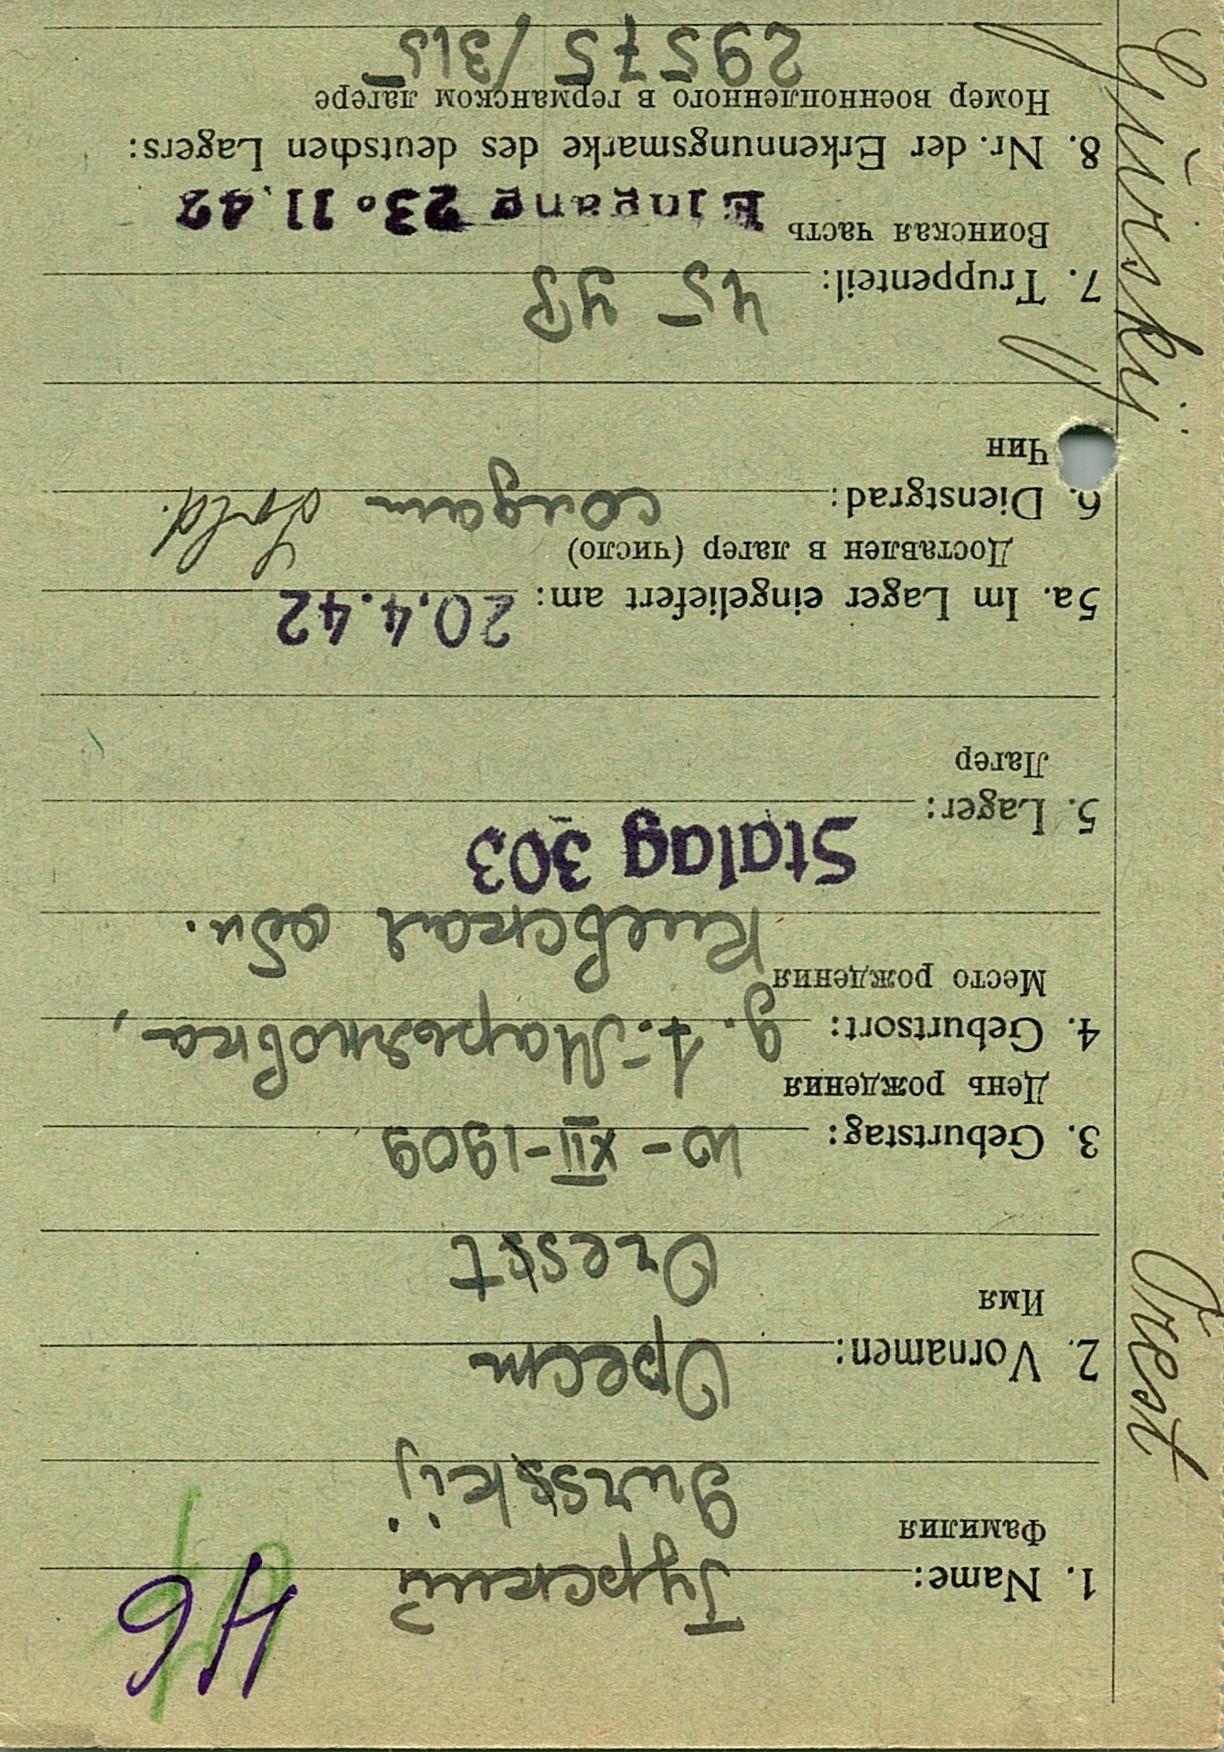 46
1. Name: Гурский
Фамилия
Gursskij
2. Vornamen: Орест
Имя
Oresst
3. Geburtstag: 10-XII-1909
День рождения
4. Geburtsort: д. 1-Марьяновка,
Место рождения Киевская обл.
Stalag 303
5. Lager:
Лагер
5a. Im Lager eingeliefert am: 20.4.42
Доставлен в лагер (число)
6. Dienstgrad: солдат Sold.
Чин
7. Truppenteil: 45
Воинская часть Eingang 23.11.42
8. Nr. der Erkennungsmarke des deutschen Lagers:
Номер военнопленного в германском лагере
29575/315
Orest Gurskij